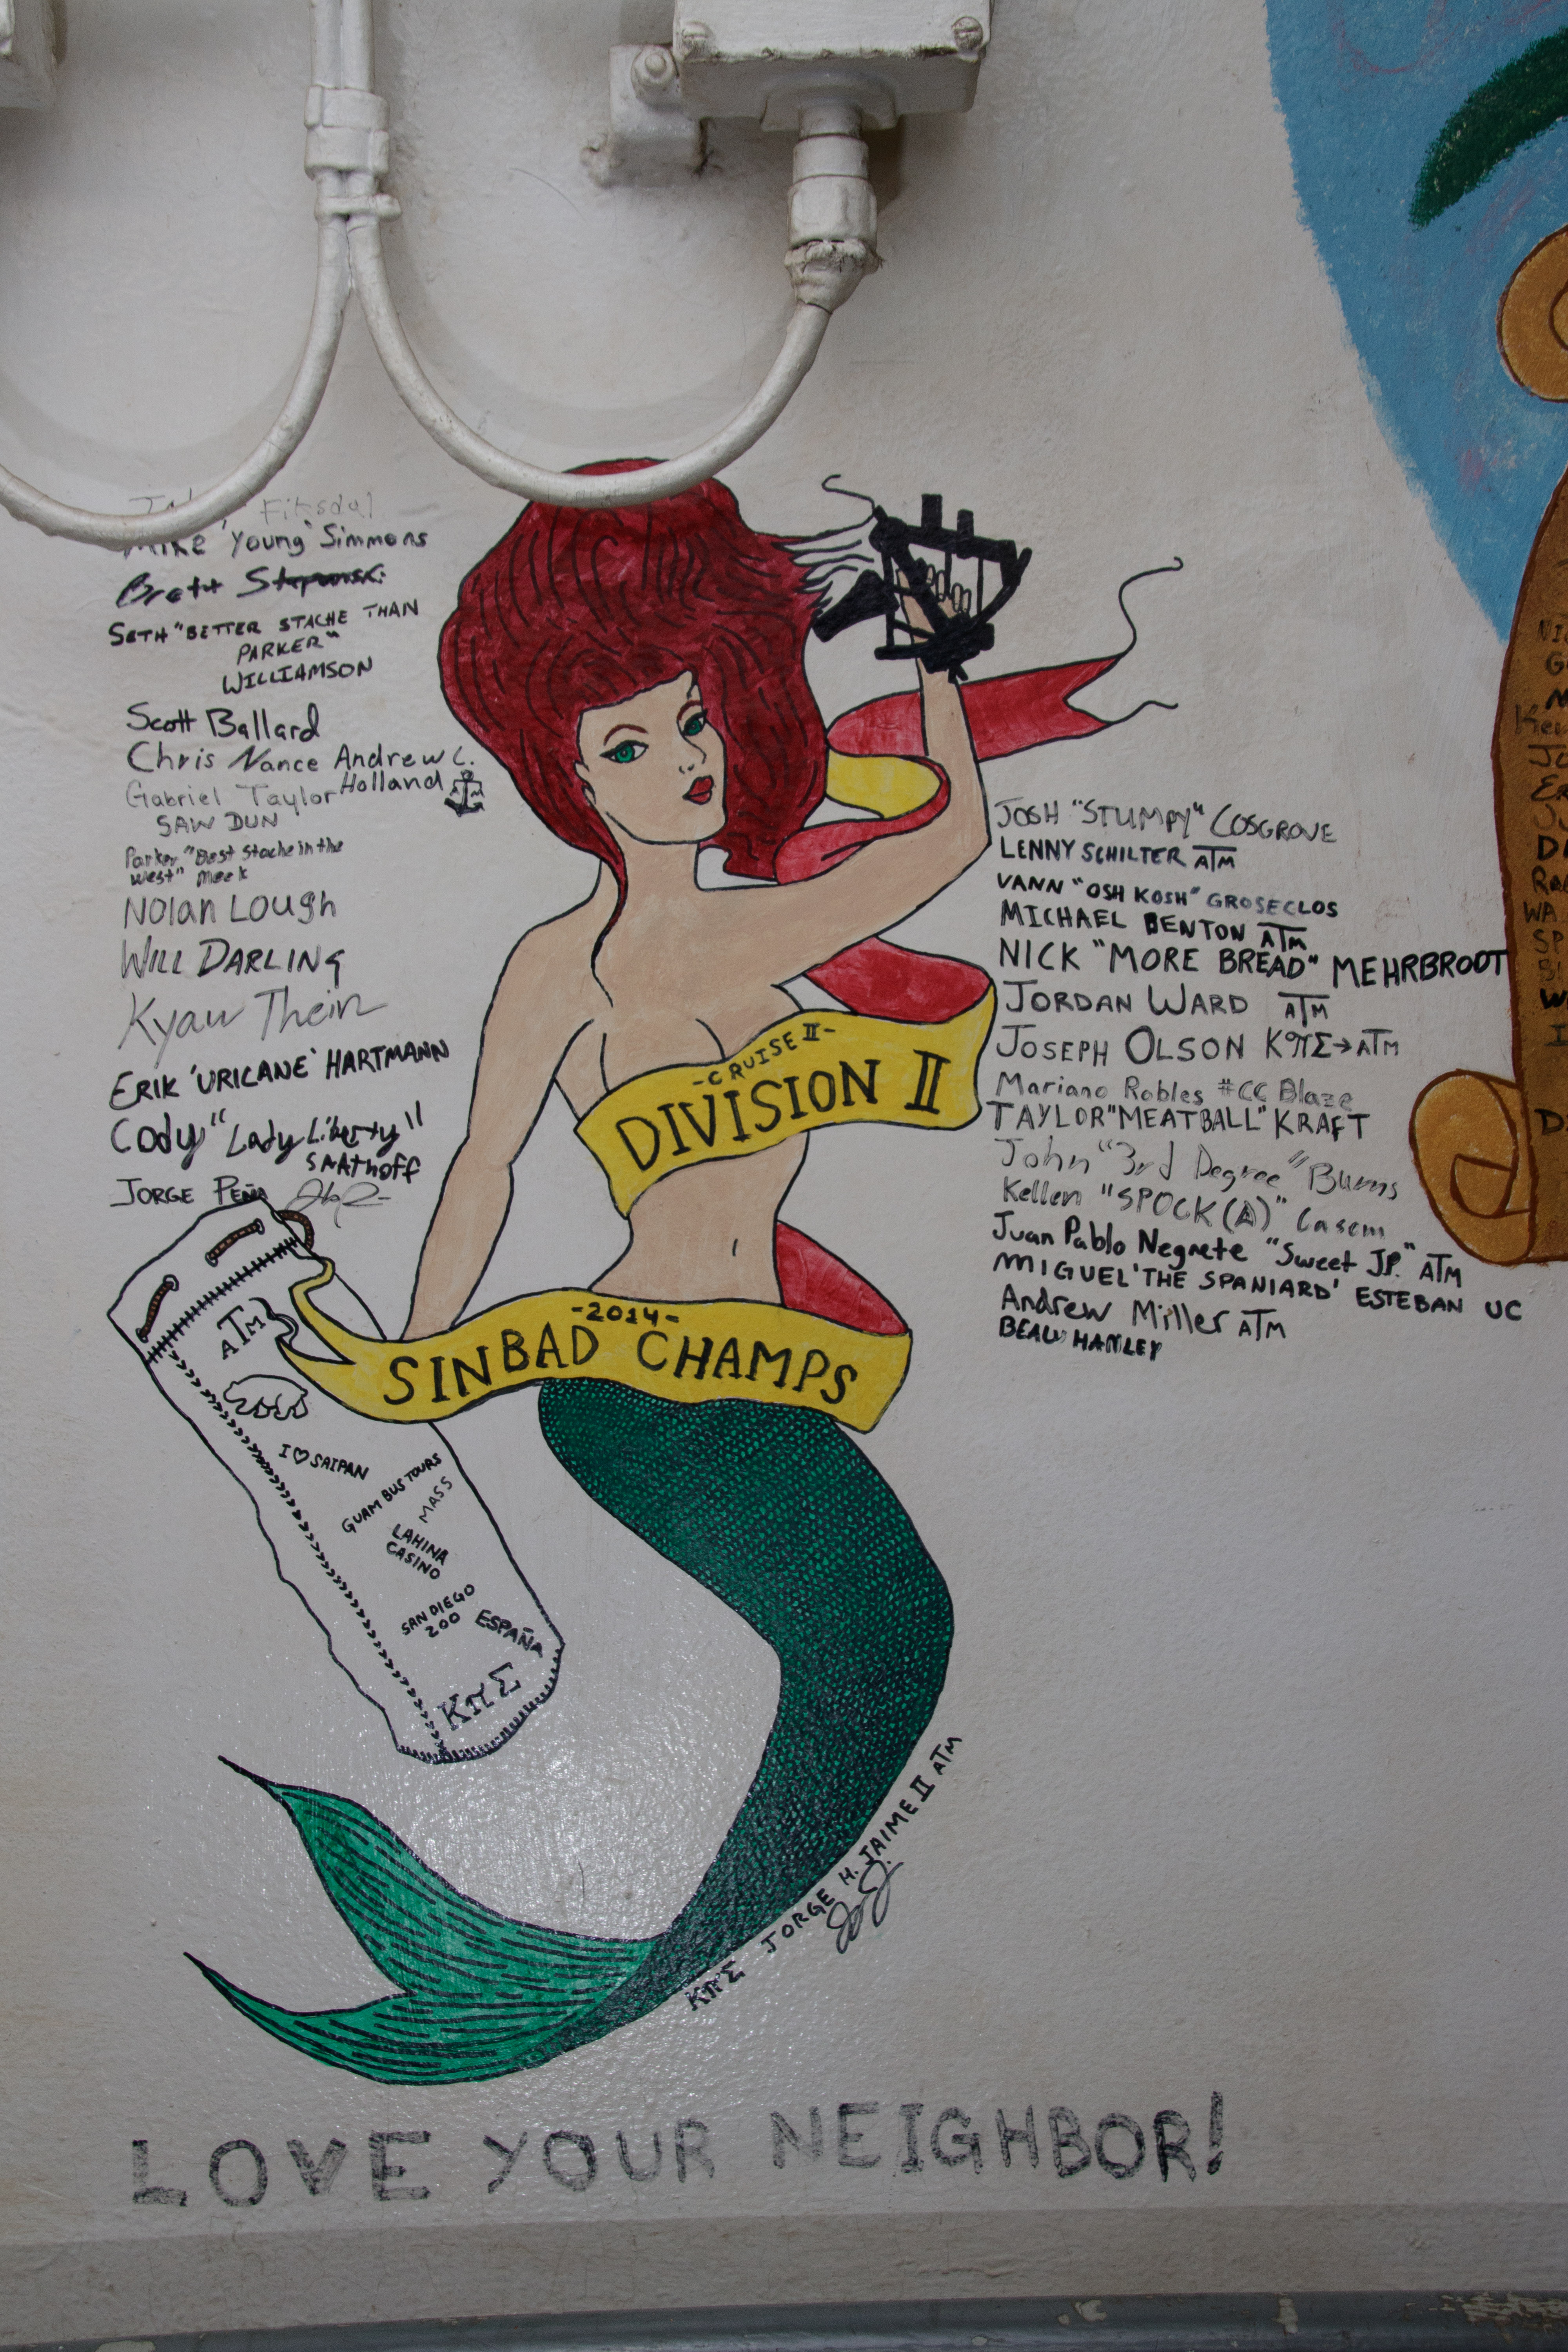 Fitsdal
Mike 'Young' Simmons
Brett
SETH "BETTER STACHE THAN
PARKER"
WILLIAMSON
Scott Ballard
Chris Nance
Andrew C.
Holland
Gabriel Taylor
SAW DUN
Parker "Best Stache in the
West" Meek
Nolan Lough
WILL DARLING
Kyaw Thein
ERIK 'URICANE' HARTMANN
Cody "Lady Liberty"
SAAthoff
JORGE PEÑA
JOSH "STUMPY" COSGROVE
LENNY SCHILTER ATM
VANN "OSH KOSH" GROSECLOS
MICHAEL BENTON ATM
NICK "MORE BREAD" MEHRBROOT
JORDAN WARD ATM
JOSEPH OLSON KΠΣ→ATM
Mariano Robles #CC Blaze
TAYLOR "MEATBALL" KRAFT
John "3rd Degree" Burns
Kellen "SPOCK (A)" Casem
Juan Pablo Negrete "Sweet JP." ATM
MIGUEL 'THE SPANIARD' ESTEBAN UC
Andrew Miller ATM
BEAU HANLEY
-CRUISE II-
DIVISION II
-2014-
SINBAD CHAMPS
ATM
I ♡ SAIPAN
GUAM BUS TOURS
MASS
LAHINA
CASINO
SAN DIEGO
200
ESPAÑA
KΠΣ
KΠΣ JORGE H. JAIME II ATM
LOVE YOUR NEIGHBOR!